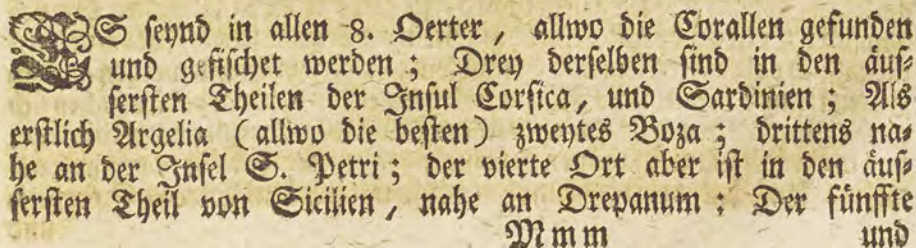 ES seynd in allen 8. Oerter, allwo die Corallen gefunden
und gefischet werden; Drey derselben sind in den äus-
sersten Theilen der Insul Corsica, und Sardinien; Als
erstlich Argelia (allwo die besten) zweytes Boza; drittens na-
he an der Insel S. Petri; der vierte Ort aber ist in den äus-
sersten Theil von Sicilien, nahe an Drepanum: Der fünffte
Mmm und